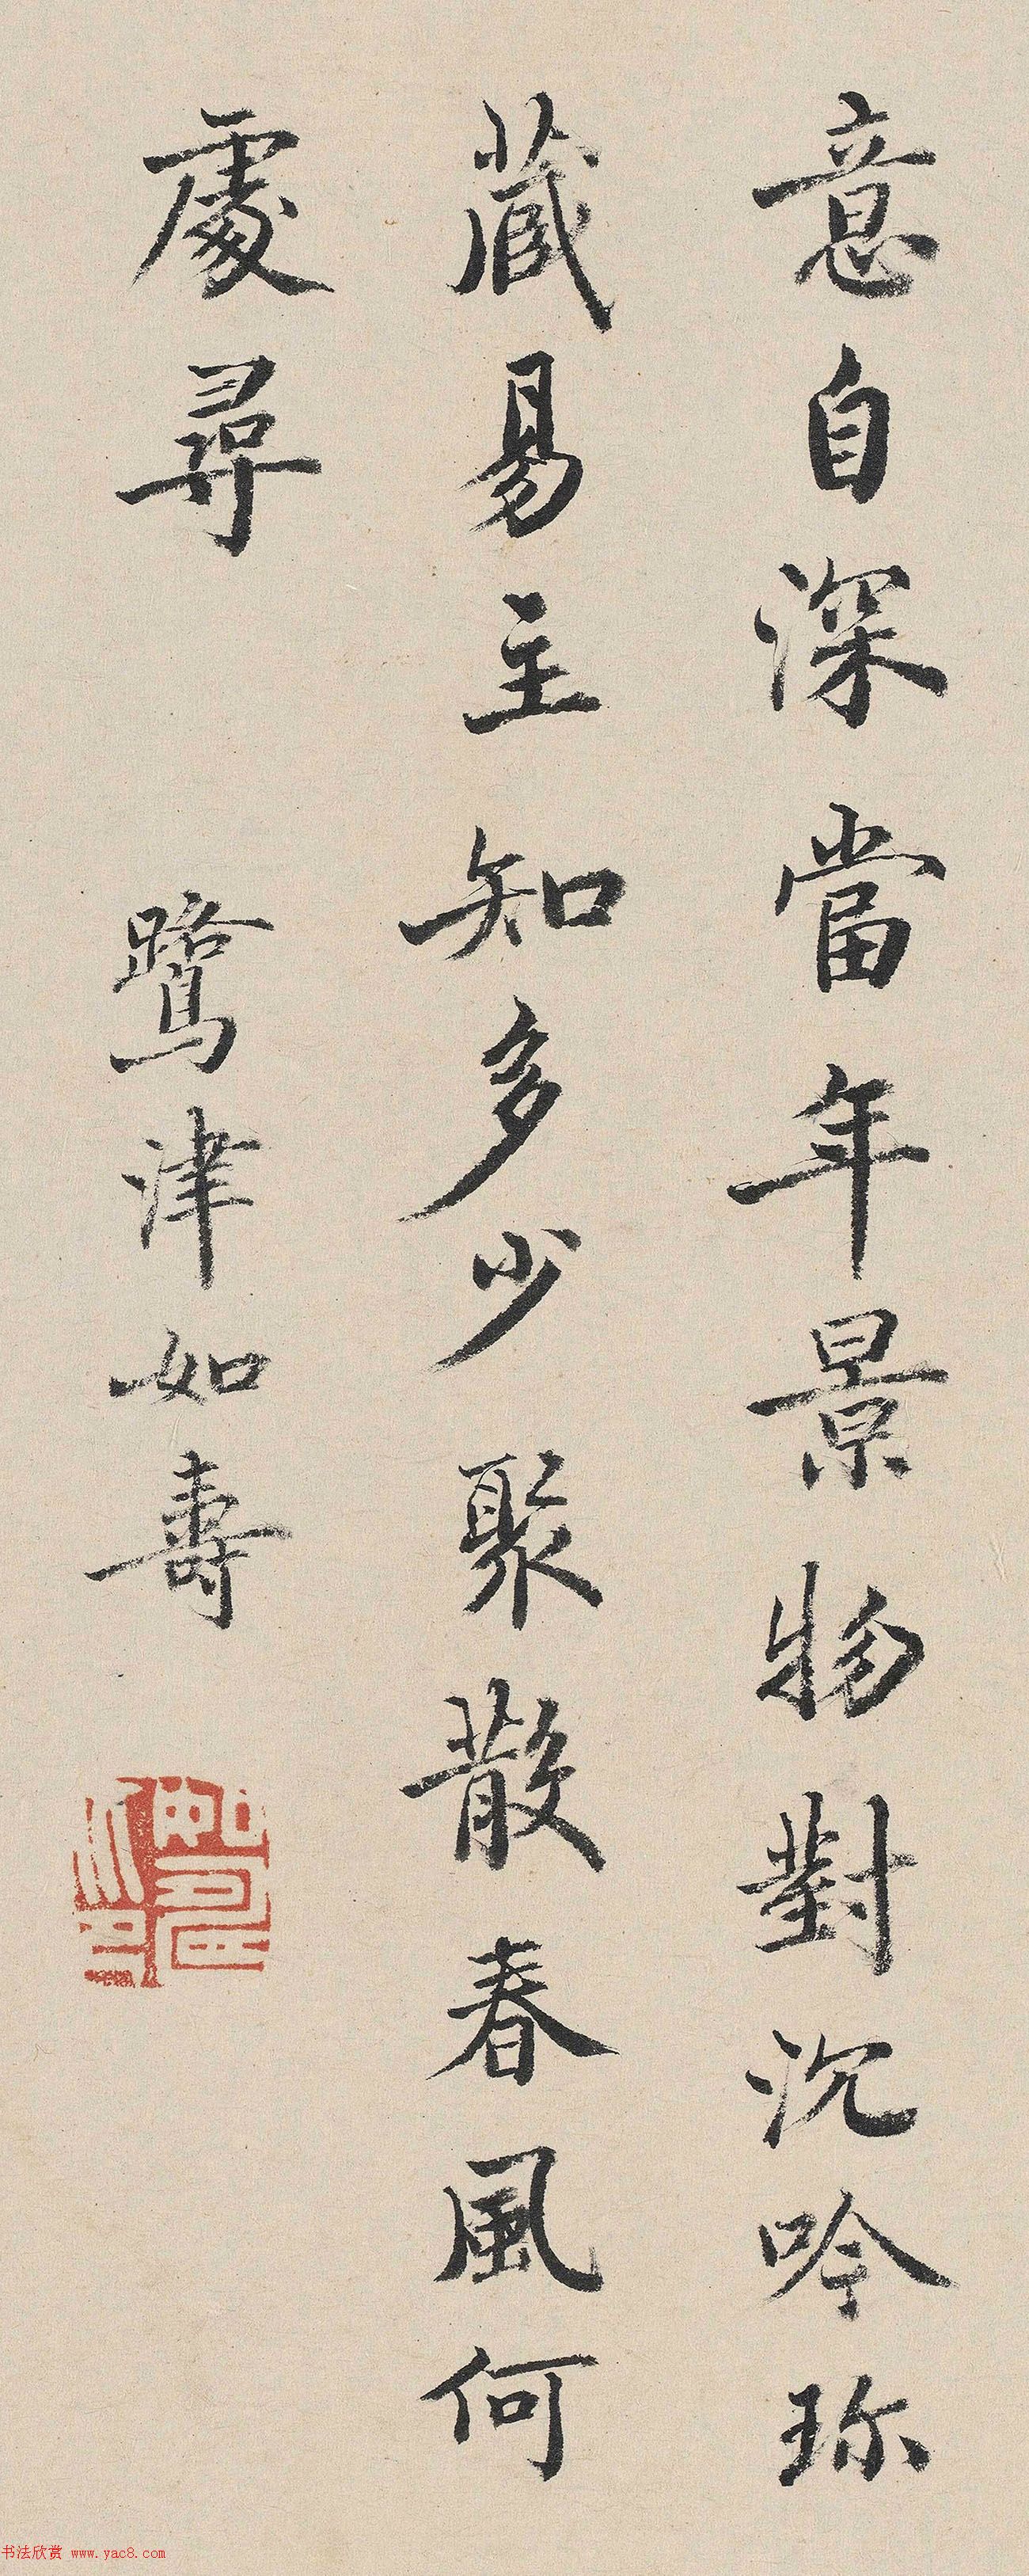 意自深當年景物對沉吟珎
蔵易主知多少聚散春風何
處尋
鷺津如壽
书法欣赏 www.yac8.com